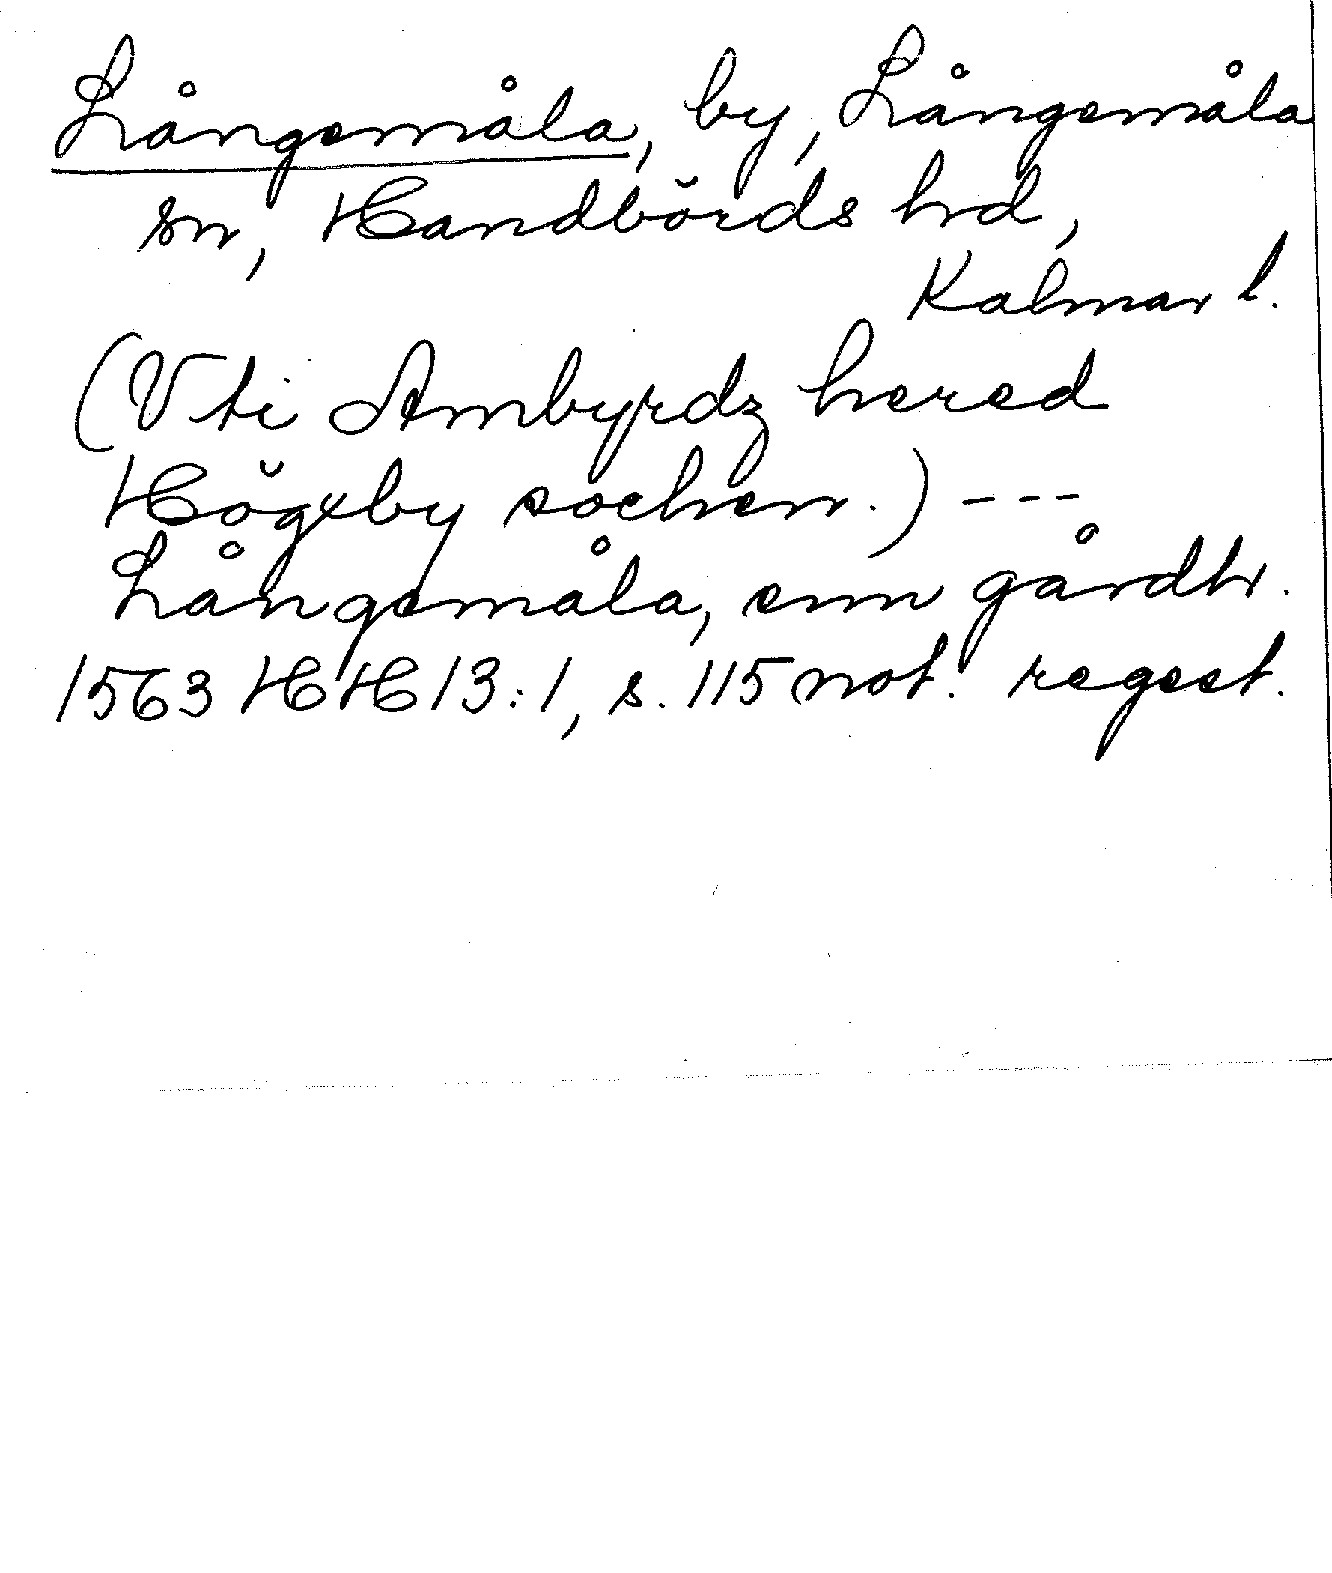 Långemåla, by, Långemåla
sn, Handbörds hrd,
Kalmar l.
(Vti Ambyrdz hered
Högxby sochen.) ---
Långemåla, enn gårdh.
1563 HH 13:1, s. 115 not. regest.